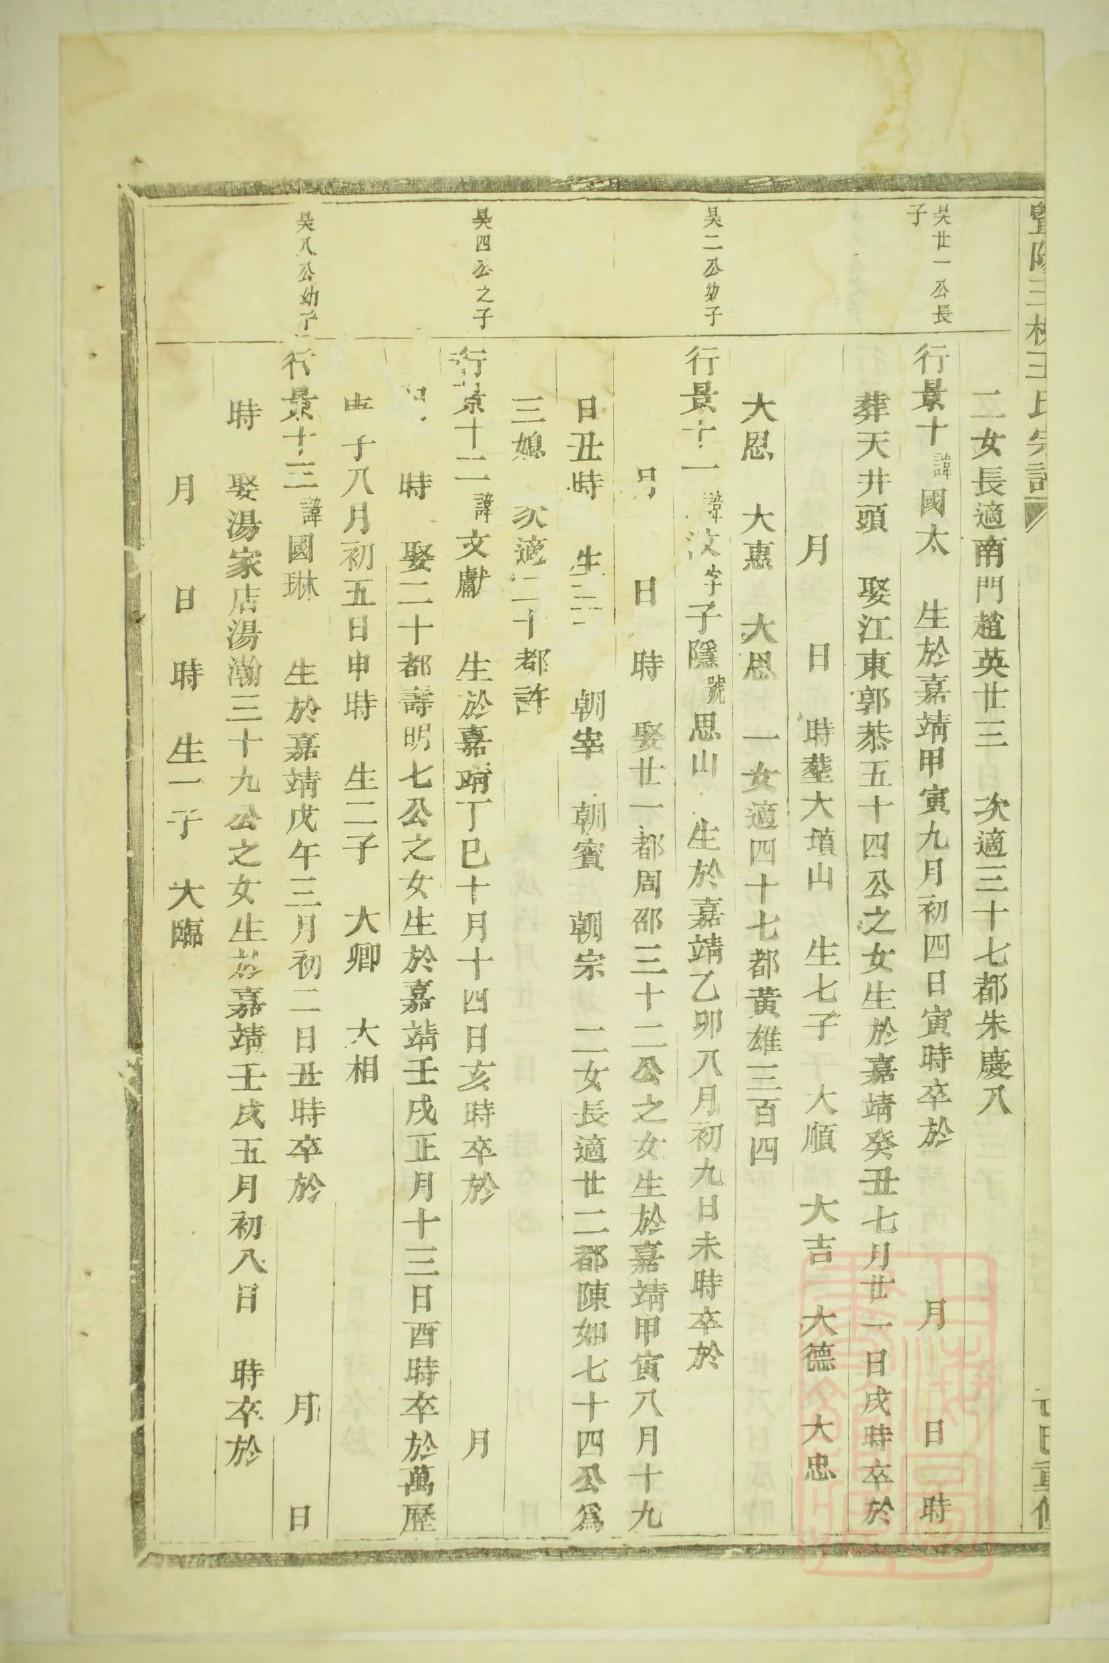 二女長適南門趙英廿三 次適三十七都朱慶八
吳廿一公長子
行景十 諱國太 生於嘉靖甲寅九月初四日寅時卒於 月 日 時
葬天井頭 娶江東郭恭五十四公之女生於嘉靖癸丑七月廿一日戌時卒於
月 日 時塟大墳山 生七子 大順 大吉 大德 大忠
大恩 大惠 大思 一女適四十七都黃雄三百四
吳二公幼子
行景十一 諱汶字子隱號思山 生於嘉靖乙卯八月初九日未時卒於
月 日 時 娶廿一都周邵三十二公之女生於嘉靖甲寅八月十九
日丑時 生三 朝宰 朝賓 朝宗 二女長適廿二都陳如七十四公爲
三媳 次適二十都許
吳四公之子
行景十二 諱文獻 生於嘉靖丁巳十月十四日亥時卒於 月
時 娶二十都壽明七公之女生於嘉靖壬戌正月十三日酉時卒於萬歷
子八月初五日申時 生二子 大卿 大相
吳八公幼子
行景十三 諱國琳 生於嘉靖戊午三月初二日丑時卒於 月 日
時 娶湯家店湯瀚三十九公之女生於嘉靖壬戌五月初八日 時卒於
月 日 時 生一子 大臨